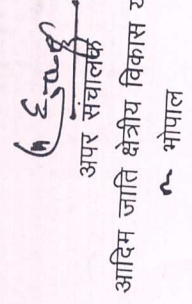 अपर संचालक
आदिम जाति क्षेत्रीय विकास
भोपाल